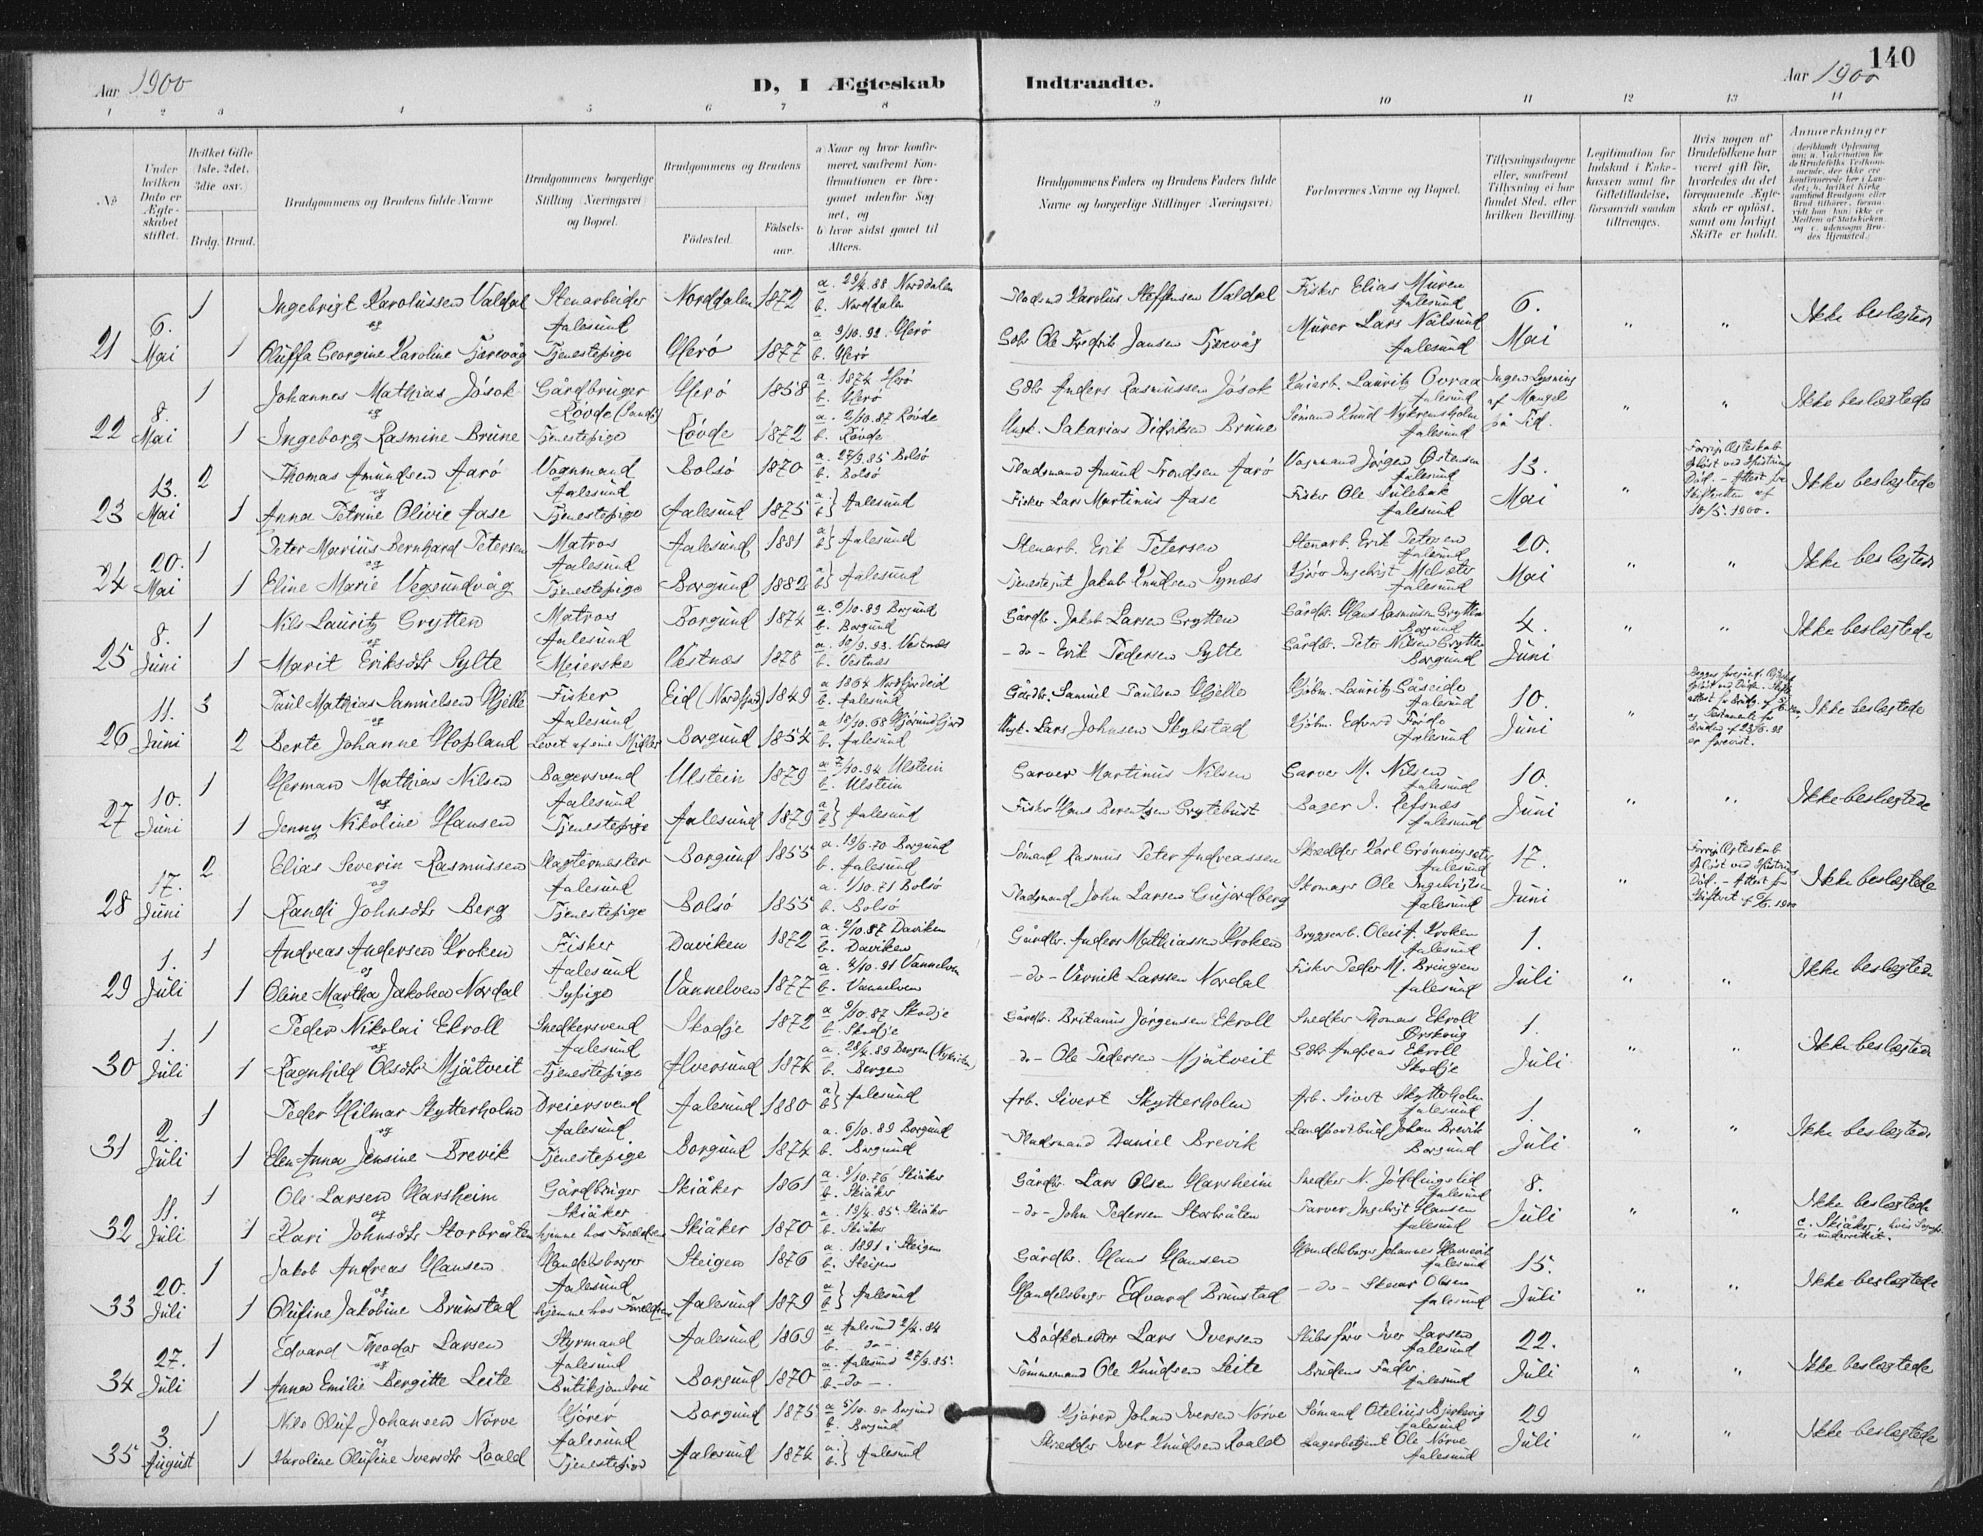 140
Aar 1900
D, I Ægteskab Indtraadte.
Aar 1900
1 2 3 4 5 6 7 8 9 10 11 12 13 14
No
Under hvilken Dato er Ægteskabet stiftet.
Hvilket Gifte (1ste, 2det, 3die osv.)
Brdg. Brud.
Brudgommens og Brudens fulde Navne
Brudgommens borgerlige Stilling (Næringsvei) og Bopæl.
Brudgommens og Brudens
Födested. Födsels-aar.
a Naar og hvor konfirmeret, saafremt Konfirmationen er foregaaet udenfor Sognet, og
b hvor sidst gaaet til Alters.
Brudgommens Faders og Brudens Faders fulde Navne og borgerlige Stillinger (Næringsvei)
Forlovernes Navne og Bopæl.
Tillysningsdagene eller, saafremt Tillysning ei har fundet Sted, efter hvilken Bevilling.
Legitimation for Indskud i Enkekassen samt for Giftetilladelse, forsaavidt saadan tiltrænges.
Hvis nogen af Brudefolkene har været gift för, hvorledes da det foregaaende Ægteskab er oplöst, samt om lovligt Skifte er holdt.
Anmerkninger
21 6. Mai 1 Ingebrigt Karolussen Valdal Stenarbeider Aalesund Norddalen 1872 a. 29/4.88 Norddalen b. Norddalen Pladsmd Karolus Steffensen Valdal Fisker Elias Muren Aalesund 6. Mai " " Ikke beslægtede
og
1 Oluffa Georgine Karoline Tjærevåg Tjenestepige Herø 1877 a. 9/10.92. Herø b. Herø Gdb. Ole Fredrik Jansen Tjærvåg Murer Lars Nålsund Aalesund
22 8. Mai 1 Johannes Mathias Jösok Gårdbruger Røvde (Sande) Herö 1858 a. 1874 Herö b. Herö Gdb. Anders Rasmussen Jösok Kaiarb. Lauritz Ovraa Aalesund Ingen Lysning af Mangel på Tid. " " Ikke beslægtede
og
1 Ingeborg Rasmine Brune Tjenestepige Røvde 1872 a. 2/10.87 Røvde b. Røvde Ungk. Sakarias Didriksen Brune Sömand Knud Nykremsholm Aalesund
23 13. Mai 2 Thomas Amundsen Aarö Vognmand Aalesund Bolsö 1870 a. 27/9.85 Bolsö b. Bolsö Pladsmand Amund Trondsen Aarö Vognmand Jörgen Østensen Aalesund 13. Mai " Forrige Ægteskab oplöst ved Hustrus Död. - Attest fra Skifteretten af 10/5. 1900. Ikke beslægtede
og
1 Anna Petrine Olivie Aase Tjenestepige Aalesund 1875 a. b. Aalesund Fisker Lars Martinus Aase Fisker Ole Sulebak Aalesund
24 20. Mai 1 Peter Marius Bernhard Petersen Matros Aalesund Aalesund 1881 a. b. Aalesund Stenarb. Erik Petersen Stenarb. Erik Petersen Aalesund 20. Mai " " Ikke beslægtede
og
1 Eline Marie Vegsundvåg Tjenestepige Borgund 1882 a. b. Aalesund Tjenestegut Jakob Knudsen Synæs Kjörer Ingebrigt Melsæter Aalesund
25 8. Juni 1 Nils Lauritz Grytten Matros Aalesund Borgund 1874 a. 6/10.89 Borgund b. Borgund Gårdb. Jakob Larsen Grytten Gårdbr. Hans Rasmussen Grytten Borgund 4. Juni " " Ikke beslægtede
og
1 Marit Eriksdtr Sylte Meierske Vestnæs 1878 a. 10/9.93. Vestnæs b. Vestnæs - do - Erik Pedersen Sylte Gårdbr. Peter Nilsen Grytten Borgund
26 11. Juni 3 Paul Mathias Samuelsen Hjelle Fisker Aalesund Eid (Nordfjord) 1849 a. 1864 Nordfjordeid b. Aalesund Gårdb. Samuel Paulsen Hjelle Kjöbm. Lauritz Gåseide Aalesund 10. Juni " Ikke beslægtede
og
2 Berte Johanne Hopland Levet af sine Midler Borgund 1854 a. 18/10.68 Hjörundfjord b. Aalesund Ungk. Lars Johnsen Skylstad Kjöbm. Edvard Fride Aalesund
27 10. Juni 1 Herman Mathias Nilsen Bagersvend Aalesund Ulstein 1879 a. 7/10.94 Ulstein b. Ulstein Garver Martinus Nilsen Garver M. Nilsen Aalesund 10. Juni " " Ikke beslægtede
og
1 Jenny Nikoline Hansen Tjenestepige Aalesund 1879 a. b. Aalesund Fisker Hans Berentsen Grytebust Bager J. Refsnæs Aalesund
28 17. Juni 2 Elias Severin Rasmussen Slagtermester Aalesund Borgund 1855 a. 19/6.70 Borgund b. Aalesund Sömand Rasmus Peter Andreassen Skrædder Karl Grönningsæter Aalesund 17. Juni " Forrige Ægteskab oplöst ved Hustrus Död. - Attest fra Skifteret Ikke beslægtede
og
1 Randi Johnsdtr Berg Tjenestepige Bolsö 1855 a. 1/10.71 Bolsö b. Bolsö Pladsmand John Larsen Gujordberg Skomager Ole Ingebrigtsen Aalesund
29 1. Juli 1 Andreas Andersen Kroken Fisker Aalesund Daviken 1872 a. 9/10.87 Daviken b. Daviken Gårdbr. Anders Mathiassen Kroken Bryggearb. Oluf A. Kroken Aalesund 1. Juli " " Ikke beslægtede
og
1 Oline Martha Jakobea Nordal Sypige Vannelven 1877 a. 4/10.91 Vannelven b. Vannelven - do - Vernik Larssen Nordal Fisker Peder M. Bringen Aalesund
30 1. Juli 1 Peder Nikolai Ekroll Snedkersvend Aalesund Skodje 1872 a. 9/10.87 Skodje b. Skodje Gårdb. Britanus Jörgensen Ekroll Snedker Thomas Ekroll Ørskoug 1. Juli " " Ikke beslægtede
og
1 Ragnhild Olsdtr Mjåtveit Tjenestepige Alversund 1874 a. 28/4.89 Bergen (Nykirken) b. Bergen - do - Ole Pedersen Mjåtveit Gdbr Andreas Ekroll Skodje
31 2. Juli 1 Peder Hilmar Skytterholm Dreiersvend Aalesund Aalesund 1880 a. b. Aalesund Arb. Sivert Skytterholm Arb. Sivert Skytterholm Aalesund 1. Juli " " Ikke beslægtede
og
1 Elen Anna Jensine Brevik Tjenestepige Borgund 1874 a. 6/10.89 Borgund b. Borgund Pladsmand Daniel Brevik Landpostbud Johan Brevik Borgund
32 11. Juli 1 Ole Larsen Harsheim Gårdbruger Skiåker Skiåker 1861 a. 8/10.76 Skiåker b. Skiåker Gårdbr. Lars Olsen Harsheim Snedker N. Jöddingslid Aalesund 8. Juli " " Ikke beslægtede c. Skiåker, hvis Sogneprest er underrettet.
og
1 Kari Johnsdtr Storbråten hjemme hos Forældrene Skiåker 1870 a. 19/4.85. Skiåker b. Skiåker - do - John Pedersen Storbråten Farver Ingebrigt Hansen Aalesund
33 20. Juli 1 Jakob Andreas Hansen Handelsborger Aalesund Steigen 1876 a. 1891 i Steigen b. Steigen Gårdbr. Hans Hansen Handelsborger Johannes Aalesund 15. Juli " " Ikke beslægtede
og
1 Olufine Jakobine Brunstad hjemme hos Forældrene Aalesund 1879 a. b. Aalesund Handelsborger Edvard Brunstad - do - Skevar Olsen Aalesund
34 27. Juli 1 Edvard Theodor Larsen Styrmand Aalesund Aalesund 1869 a. Aalesund 2/4.84 b. - do - Bödkermester Lars Iversen Skibsförer Iver Larsen Aalesund 22. Juli " " Ikke beslægtede
og
1 Anna Emilie Bergitte Leite Butikjomfru Borgund 1870 a. Aalesund 27/9.85. b. - do - Tömmermand Ole Knudsen Leite Brudens Fader Aalesund
35 3. August 1 Nils Oluf Johansen Nörve Kjörer Aalesund Borgund 1875 a. 5/10.90 Borgund b. Borgund Kjörer Johan Iversen Nörve Sömand Otelius Bjerkevig Aalesund 29 Juli " " Ikke beslægtede
og
1 Karoline Olufine Iversdtr Roald Tjenestepige Aalesund 1874 a. b. Aalesund Skrædder Iver Knudsen Roald Lagerbetjent Ole Nörve Aalesund